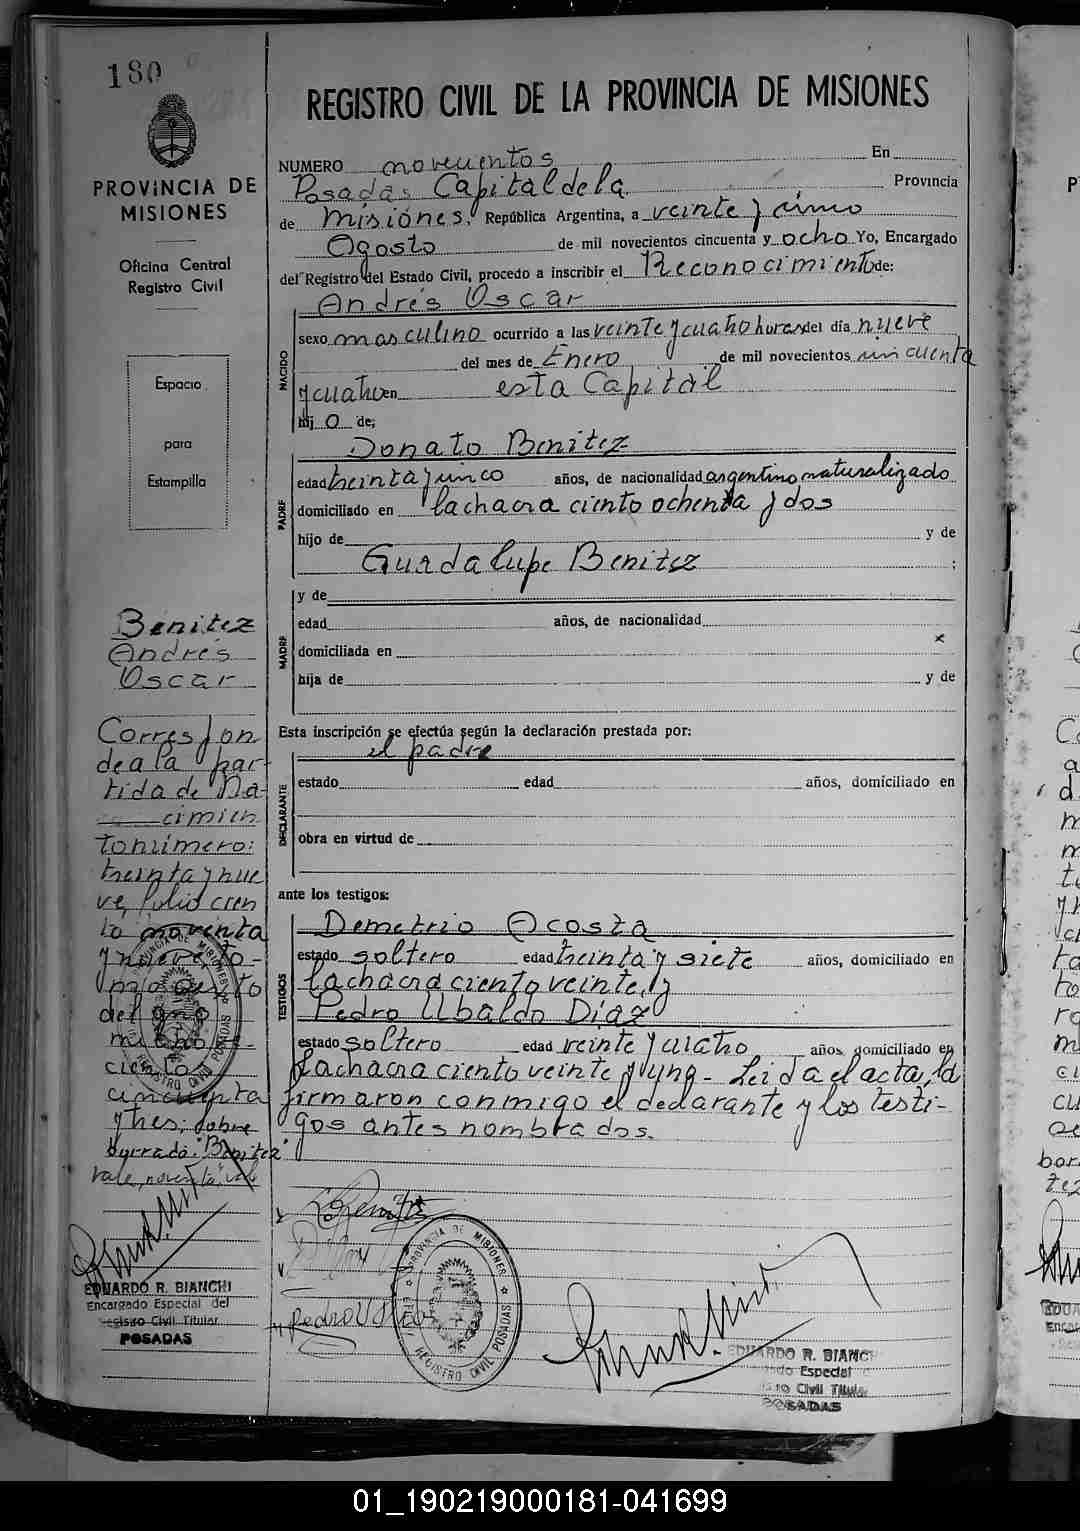 180
PROVINCIA DE
MISIONES
Oficina Central
Registro Civil
Espacio
para
Estampilla
Benitez
Andrés
Oscar
Correspon
de a la par-
tida de Na-
cimien
to número:
treinta y nue
ve, folio cien
to noventa
y nueve, to-
mo
del año
mil no
cientos
cincuenta
y tres; sobre
borrado: "Benitez"
vale, noventa, vale
EDUARDO R. BIANCHI
Encargado Especial del
Registro Civil Titular
POSADAS
REGISTRO CIVIL DE LA PROVINCIA DE MISIONES
NUMERO novecientos En
Posadas Capital de la Provincia
de Misiones. República Argentina, a veinte y cinco
Agosto de mil novecientos cincuenta y ocho Yo, Encargado
del Registro del Estado Civil, procedo a inscribir el Reconocimiento de:
Andrés Oscar
NACIDO
sexo masculino ocurrido a las veinte y cuatro horas del día nueve
del mes de Enero de mil novecientos cincuenta
y cuatro en esta Capital
hij o de;
Donato Benitez
PADRE
edad treinta y cinco años, de nacionalidad argentino naturalizado
domiciliado en la chacra ciento ochenta y dos
hijo de y de
Guadalupe Benitez ;
MADRE
y de
edad años, de nacionalidad
domiciliada en
hija de y de
Esta inscripción se efectúa según la declaración prestada por:
el padre
DECLARANTE
estado edad años, domiciliado en
obra en virtud de
ante los testigos:
TESTIGOS
Demetrio Acosta
estado soltero edad treinta y siete años, domiciliado en
la chacra ciento veinte, y
Pedro Ubaldo Díaz
estado soltero edad veinte y cuatro años domiciliado en
la chacra ciento veinte y uno- Leída el acta, la
firmaron conmigo el declarante y los testi-
gos antes nombrados.
PROVINCIA DE MISIONES
REGISTRO CIVIL POSADAS
EDUARDO R. BIANCHI
Especial
Civil Titular
POSADAS
01_190219000181-041699